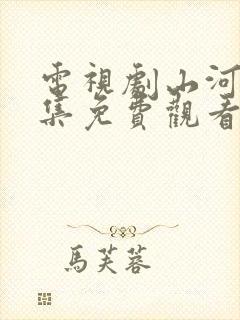 電視劇山河
集免費觀看
馬芙蓉